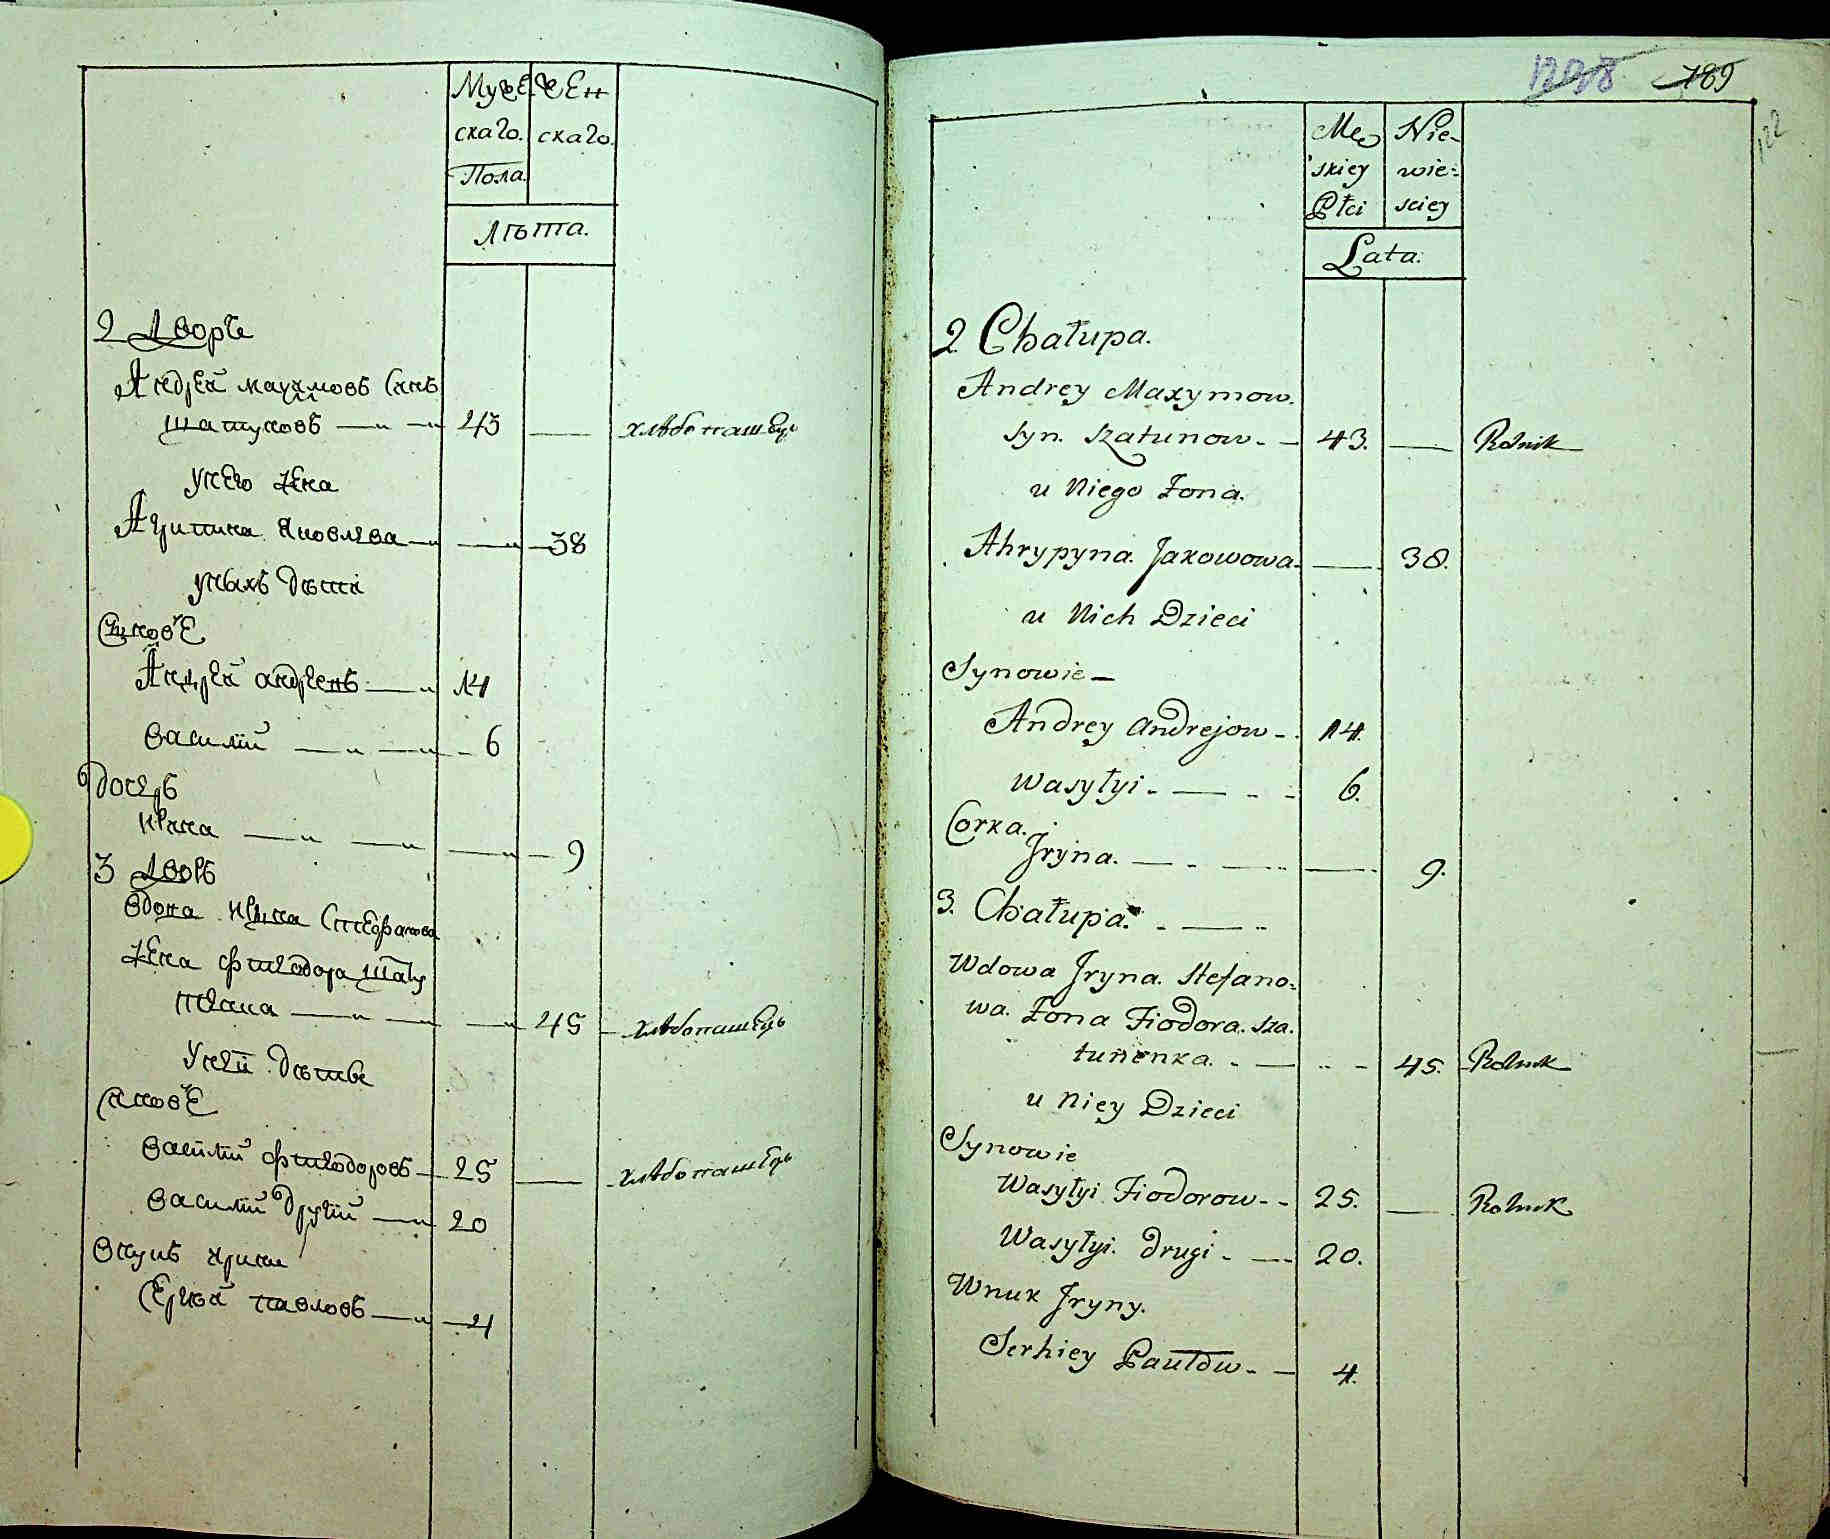 Муже
Жен
скаго.
скаго.
Пола.
Лѣта.
2 Дворъ
Андрей Махимовъ Синъ
Шатуновъ 43 хлѣбопашецъ
у него Жена
Агрипина Яковлева 38
у ныхъ Дѣти
Синовѣ
Андрей андреевъ 14
Василій 6
Дочерь
Ирина 9
3 Дворъ
Вдова Ирина Стефанова
Жена Фіодора Шату
ненка 45 хлѣбопашецъ
У ней Дѣти
Синовѣ
Василій Фіодоровъ 25 хлѣбопашецъ
Василій другій 20
Внукъ Ирини
Сергій Павловъ 4
1208 789
122
Męs
Nie-
skiey
wie-
Płci
sciey
Lata.
2 Chałupa.
Andrey Maxymow.
syn. Szatunow 43. Rolnik
u Niego Żona.
Ahrypyna. Jakowowa 38.
u Nich Dzieci
Synowie
Andrey Andrejow 14.
Wasyłyi 6.
Corka.
Jryna. 9.
3. Chałupa.
Wdowa Jryna. Stefano-
wa. Żona Fiodora. Sza.
tunenka. 45. Rolnik
u Niey Dzieci
Synowie
Wasyłyi Fiodorow 25. Rolnik
Wasyłyi. Drugi 20.
Wnuk Jryny.
Serhiey Pawłow 4.